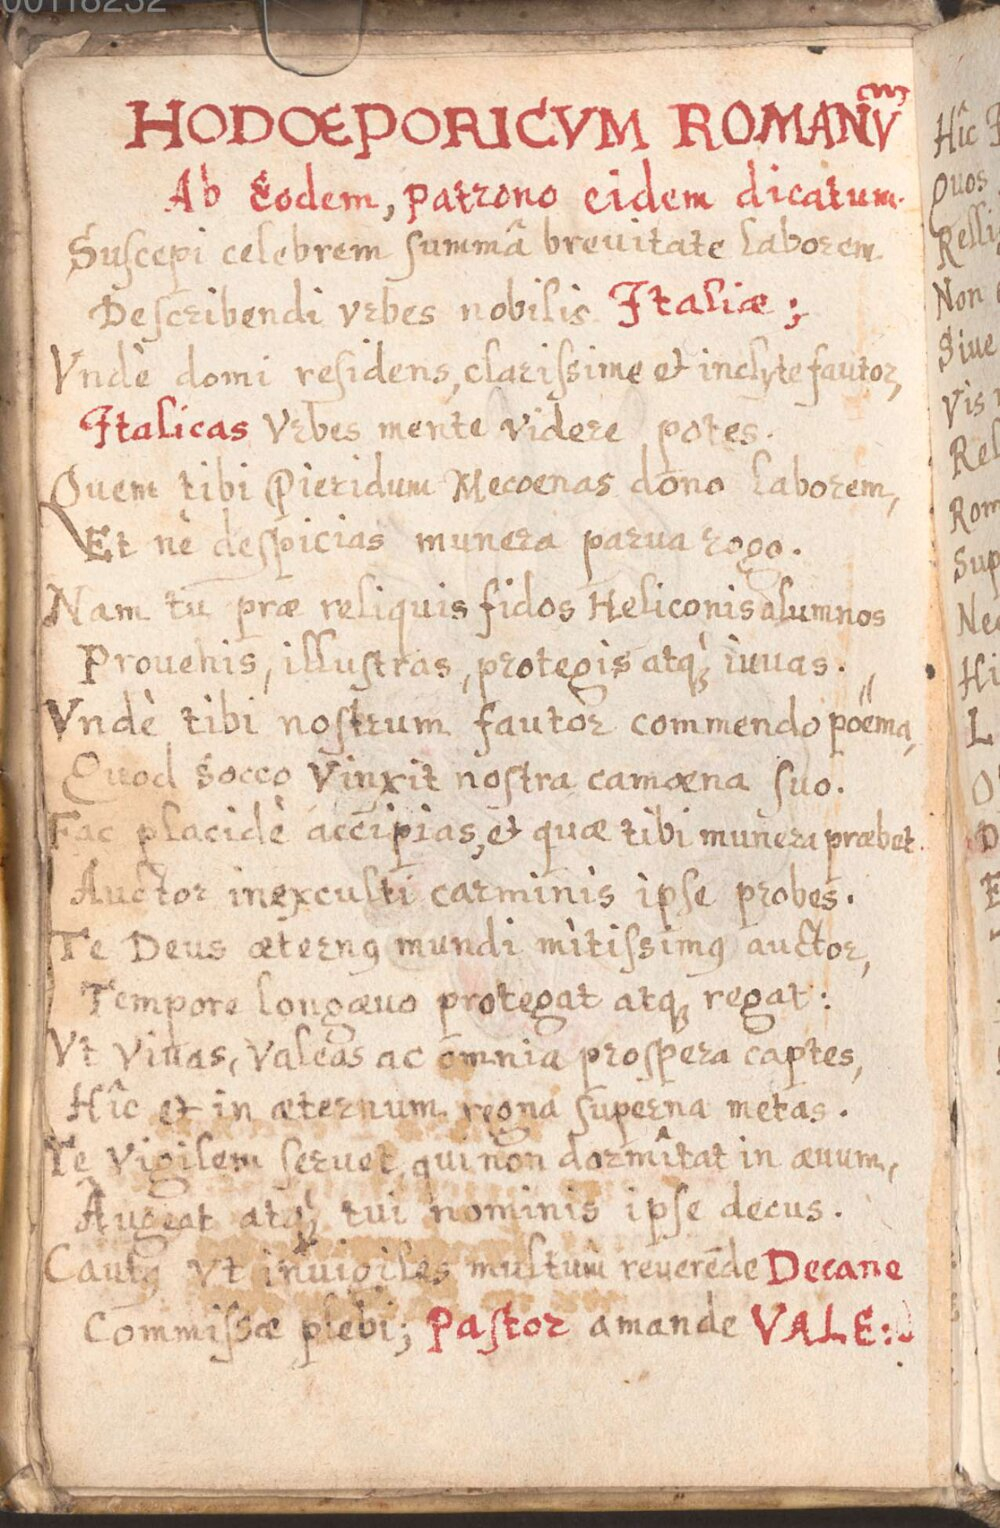 00118232
HODOEPORICVM ROMANVm
Ab Eodem, patrono eidem dicatum.
Suscepi celebrem summâ breuitate Laborem
Describendi vrbes nobilis Italiæ;
Vndè domi residens, clarissime et inclyte fautor,
Italicas Vrbes mente videre potes.
Quem tibi Pieridum Mecoenas dono Laborem,
Et nè despicias munera parua rogo.
Nam tu præ reliquis fidos Heliconis alumnos
Prouehis, illustras, protegis atq́ꝫ iuuas.
Vndè tibi nostrum fautor commendo poëma,
Quod Socco Vinxit nostra camœna suo.
Fac placidè accipias, et quæ tibi munera præbet
Auctor inexculti carminis ipse probes.
Te Deus æternꝰ mundi mitissimꝰ auctor,
Tempore longæuo protegat atqꝫ regat:
Vt Viuas, Valeas ac omnia prospera captes,
Hîc et in æternum regna superna metas.
Te Vigilem seruet, qui non dormîtat in æuum,
Augeat atq́ꝫ tui nominis ipse decus.
Cautꝰ Vt inuigiles multum reuerēde Decane
Commissæ plebi; Pastor amande VALE:
Hîc
Quos
Relli
Non
Siue
Vis
Rel
Rom
Sup
Nec
Hi
L